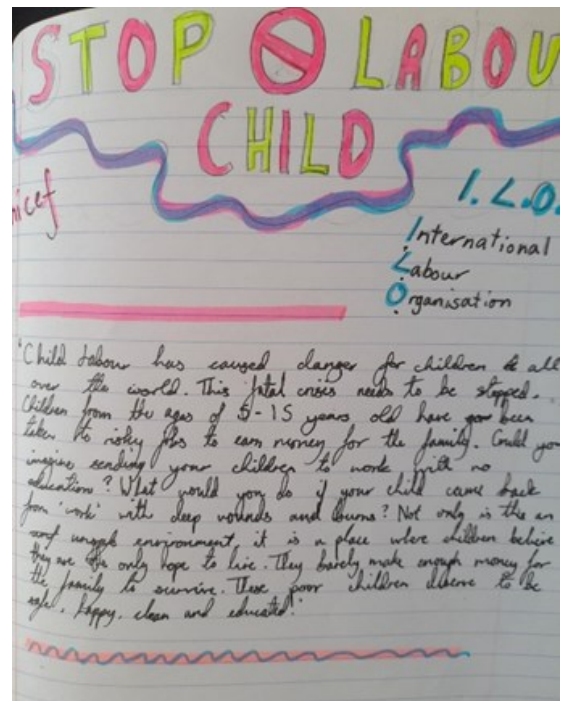 STOP LABOU
CHILD
nicef
I.L.O.
International
Labour
Organisation
"Child labour has caused danger for children all
over the world. This fatal crises needs to be stopped.
Children from the ages of 5-15 years old have been
taken to risky jobs to earn money for the family. Could you
imagine sending your children to work with no
education? What would you do if your child came back
from 'work' with deep wounds and burns? Not only is this an
unsafe environment, it is a place where children believe
they are the only hope to live. They barely make enough money for
the family to survive. These poor children deserve to be
safe, happy, clean and educated!"